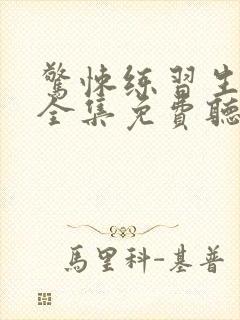 驚悚练習生
全集免費聽
馬里科-基普